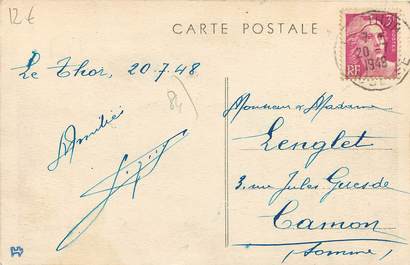 12€
CARTE POSTALE
3F
RF
20 -7
1948
Le Thor, 20.7.48
84
Amitiés
Monsieur & Madame
Lenglet
3, rue Jules Guesde
Camon
(Somme)